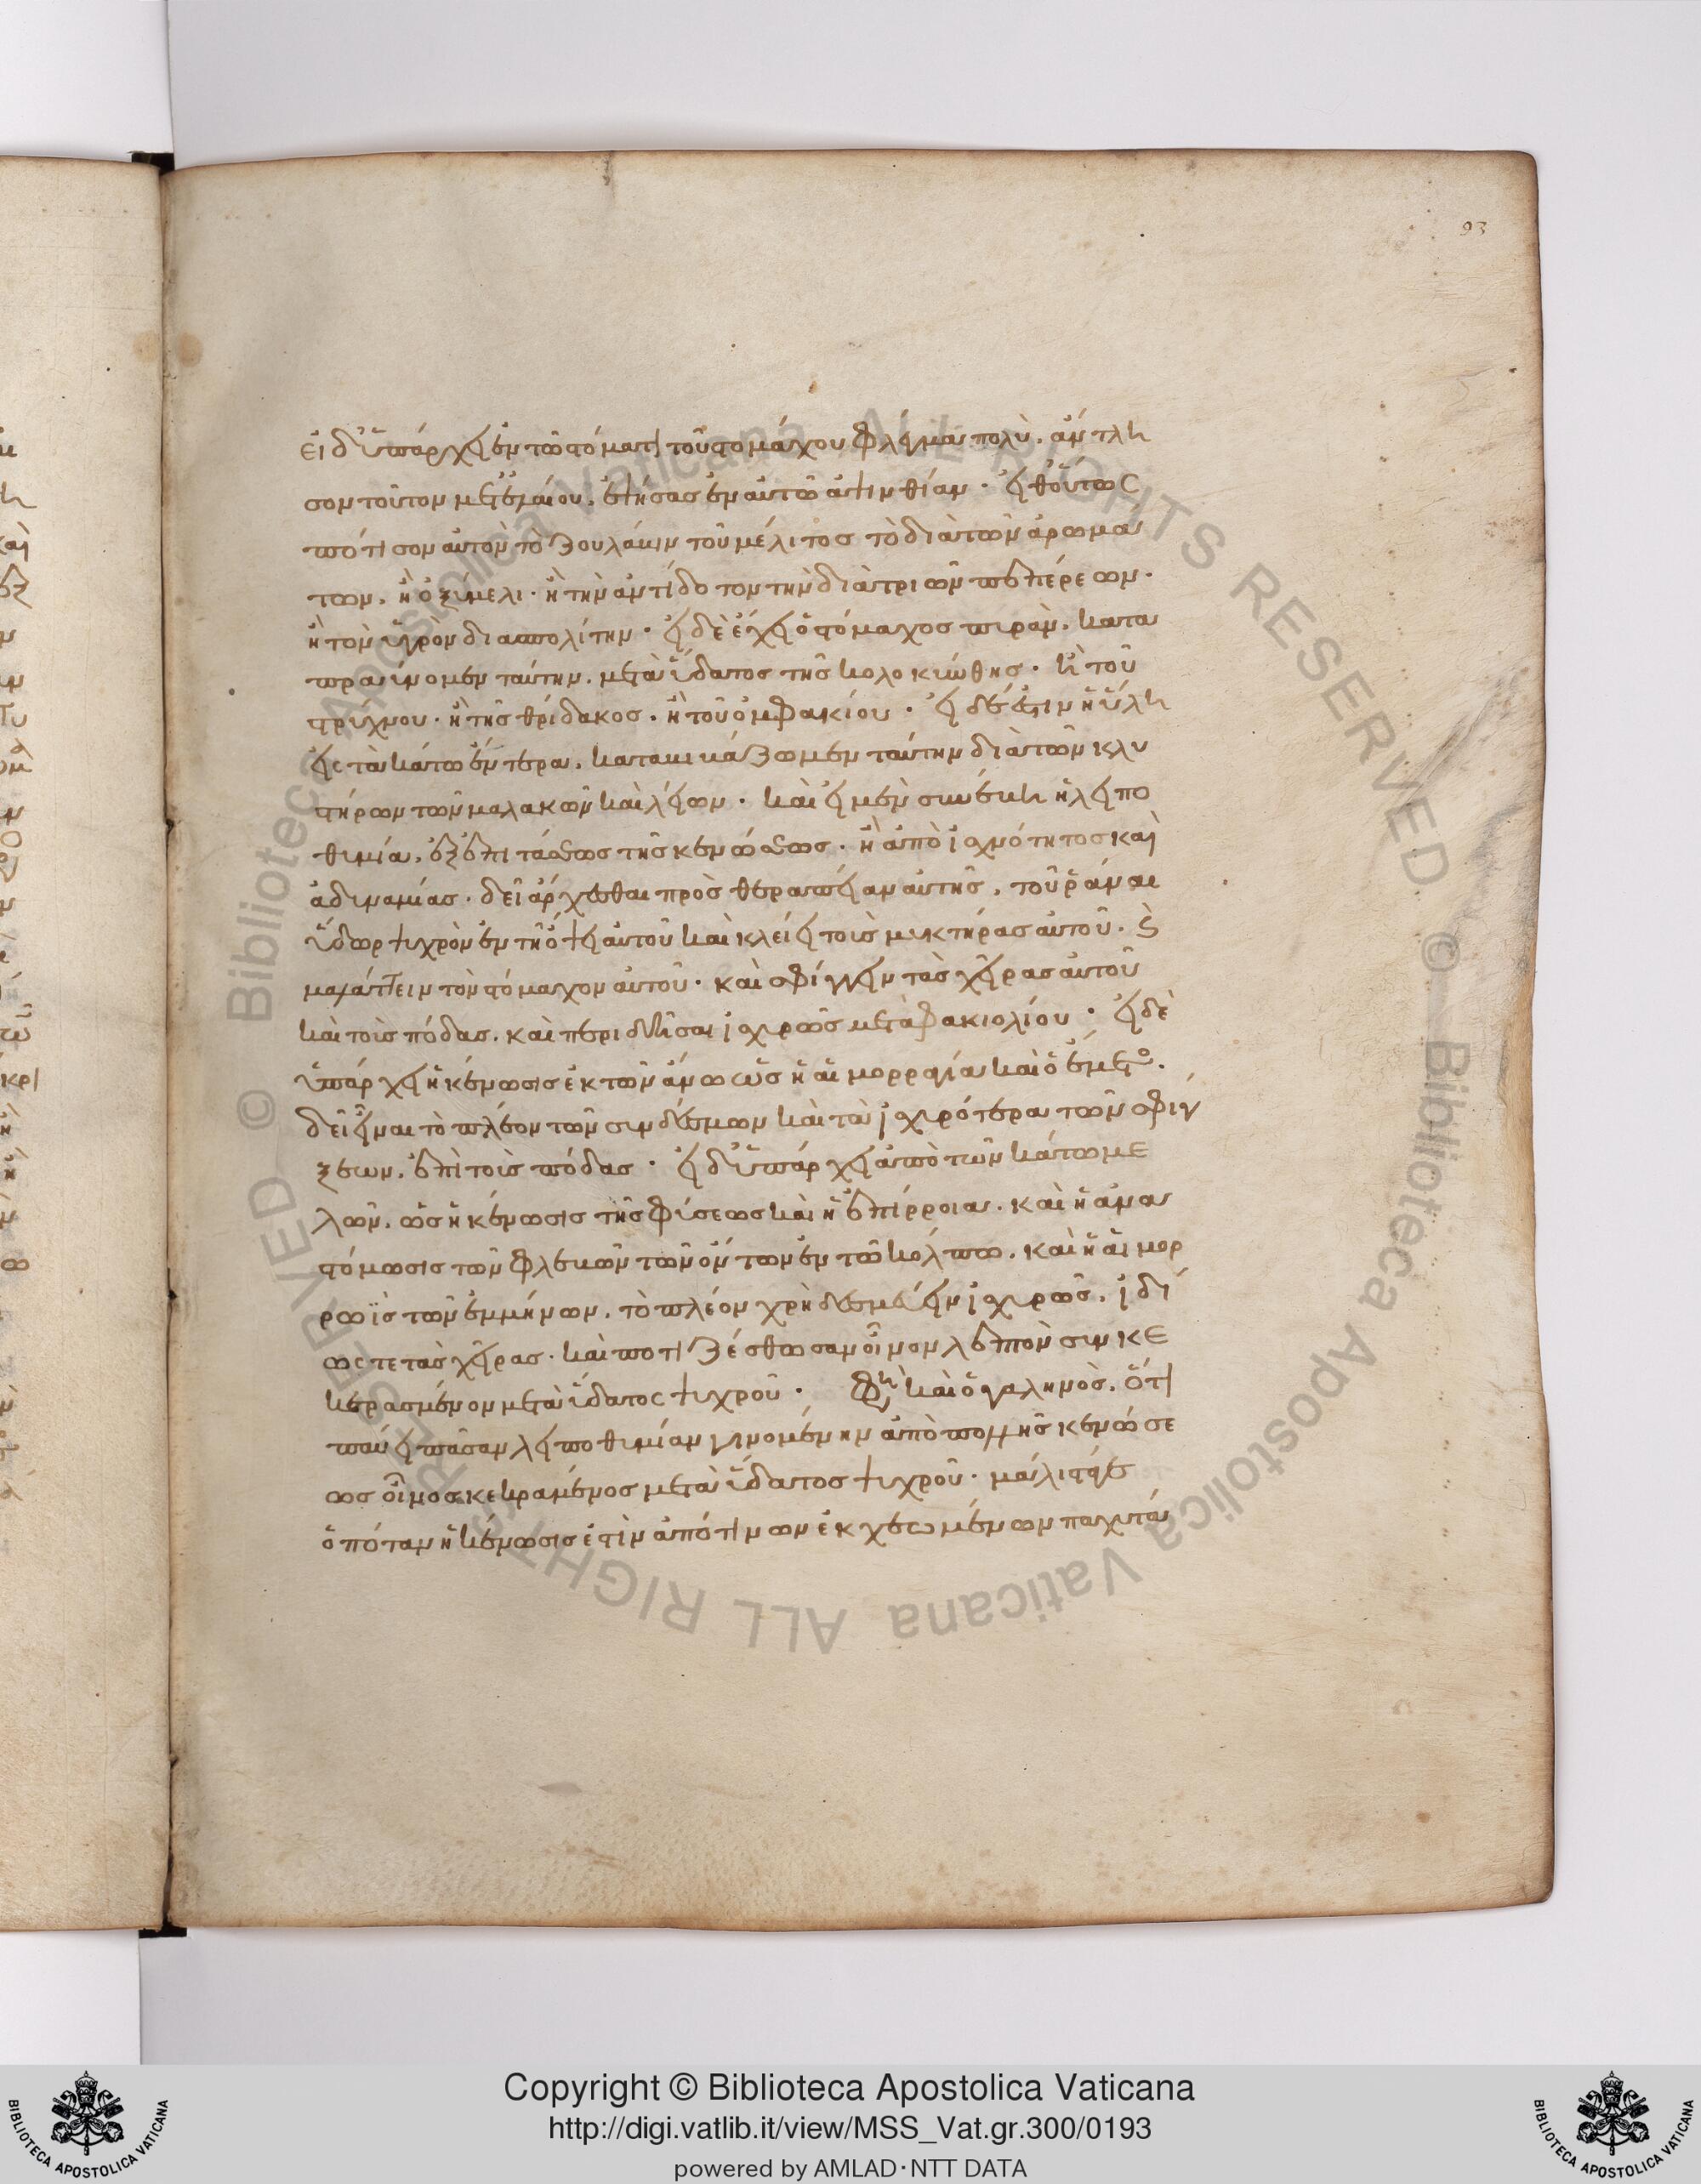 93
εἰ δ' ὑπάρχει ἐν τῶ στόματι τοῦ στομάχου φλέγμα πολὺ, ἄντλη
σον τοῦτον μετ' ἐλαίου, ἑψήσας ἐν αὐτῶ ἀψινθίαν· εἶθ' οὕτως
πότισον αὐτὸν τὸ ζουλάπιν τοῦ μέλιτος τὸ διὰ τῶν ἀρωμά
των, ἢ ὀξύμελι· ἢ τὴν ἀντίδοτον τὴν διὰ τριῶν πεπέρεων·
ἢ τὸν ὑγρὸν διασπολίτην· εἰ δὲ ἔχει ὁ στόμαχος πυρὰν, κατα
πραΰνομεν ταύτην, μετὰ ὕδατος τῆς κολοκύνθης· ἢ τοῦ
στρύχνου· ἢ τῆς θρίδακος· ἢ τοῦ ὀμφακίου· εἰ δέ ἐστιν ἡ ὕλη
εἰς τὰ κάτω ἔντερα, κατακικάζωμεν ταύτην διὰ τῶν κλυ
στήρων τῶν μαλακῶν καὶ λείων· καὶ εἰ μὲν συνέβη ἡ λειπο
θυμία, ἐξ ἐπιτάσεως τῆς κενώσεως· ἢ ἀπὸ ἰσχνότητος καὶ
ἀδυναμίας· δεῖ ἄρχεσθαι πρὸς θεραπείαν αὐτῆς, τοῦ ῥάναι
ὕδωρ ψυχρὸν ἐν τῆ ὄψει αὐτοῦ καὶ κλείει τοὺς μυκτήρας αὐτοῦ· καὶ
μαλάττειν τὸν στόμαχον αὐτοῦ· καὶ σφίγγειν τὰς χεῖρας αὐτοῦ
καὶ τοὺς πόδας, καὶ περιδῆσαι ἰσχυρῶς μετὰ φακιολίου· εἰ δὲ
ὑπάρχει ἡ κένωσις ἐκ τῶν ἄνω ὡς ἡ αἱμορραγία καὶ ὁ ἔμετος·
δεῖ εἶναι τὸ πλέον τῶν συνδέσμων καὶ τὰ ἰσχυρότερα τῶν σφίγ
ξεων, ἐπὶ τοὺς πόδας· εἰ δ' ὑπάρχει ἀπὸ τῶν κάτω με
λῶν, ὡς ἡ κένωσις τῆς φύσεως καὶ ἡ ἐπίρροια, καὶ ἡ ἀνα
στόμωσις τῶν φλεβῶν τῶν ὄντων ἐν τῶ κόλπω, καὶ ἡ αἱμορ
ρωῒς τῶν ἐμμήνων, τὸ πλέον χρὴ δεσμεύειν ἰσχυρῶς, ἰδί
ως τε τὰς χεῖρας· καὶ ποτιζέσθωσαν οἶνον λεπτὸν συνκε
κερασμένον μετὰ ὕδατος ψυχροῦ· φησὶ καὶ ὁ γαληνὸς, ὅτι
παύει πᾶσαν λειποθυμίαν γινομένην ἀπὸ πολλῆς κενώσε
ως οἶνος κεκραμένος μετὰ ὕδατος ψυχροῦ· μάλιστά γε
ὁπόταν ἡ κένωσις ἐστὶν ἀπό τινων ἐκχεομένων παχυτά
Copyright © Biblioteca Apostolica Vaticana
http://digi.vatlib.it/view/MSS_Vat.gr.300/0193
powered by AMLAD·NTT DATA
BIBLIOTECA APOSTOLICA VATICANA
BIBLIOTECA APOSTOLICA VATICANA
© Biblioteca Apostolica Vaticana ALL RIGHTS RESERVED © Biblioteca Apostolica Vaticana ALL RIGHTS RESERVED